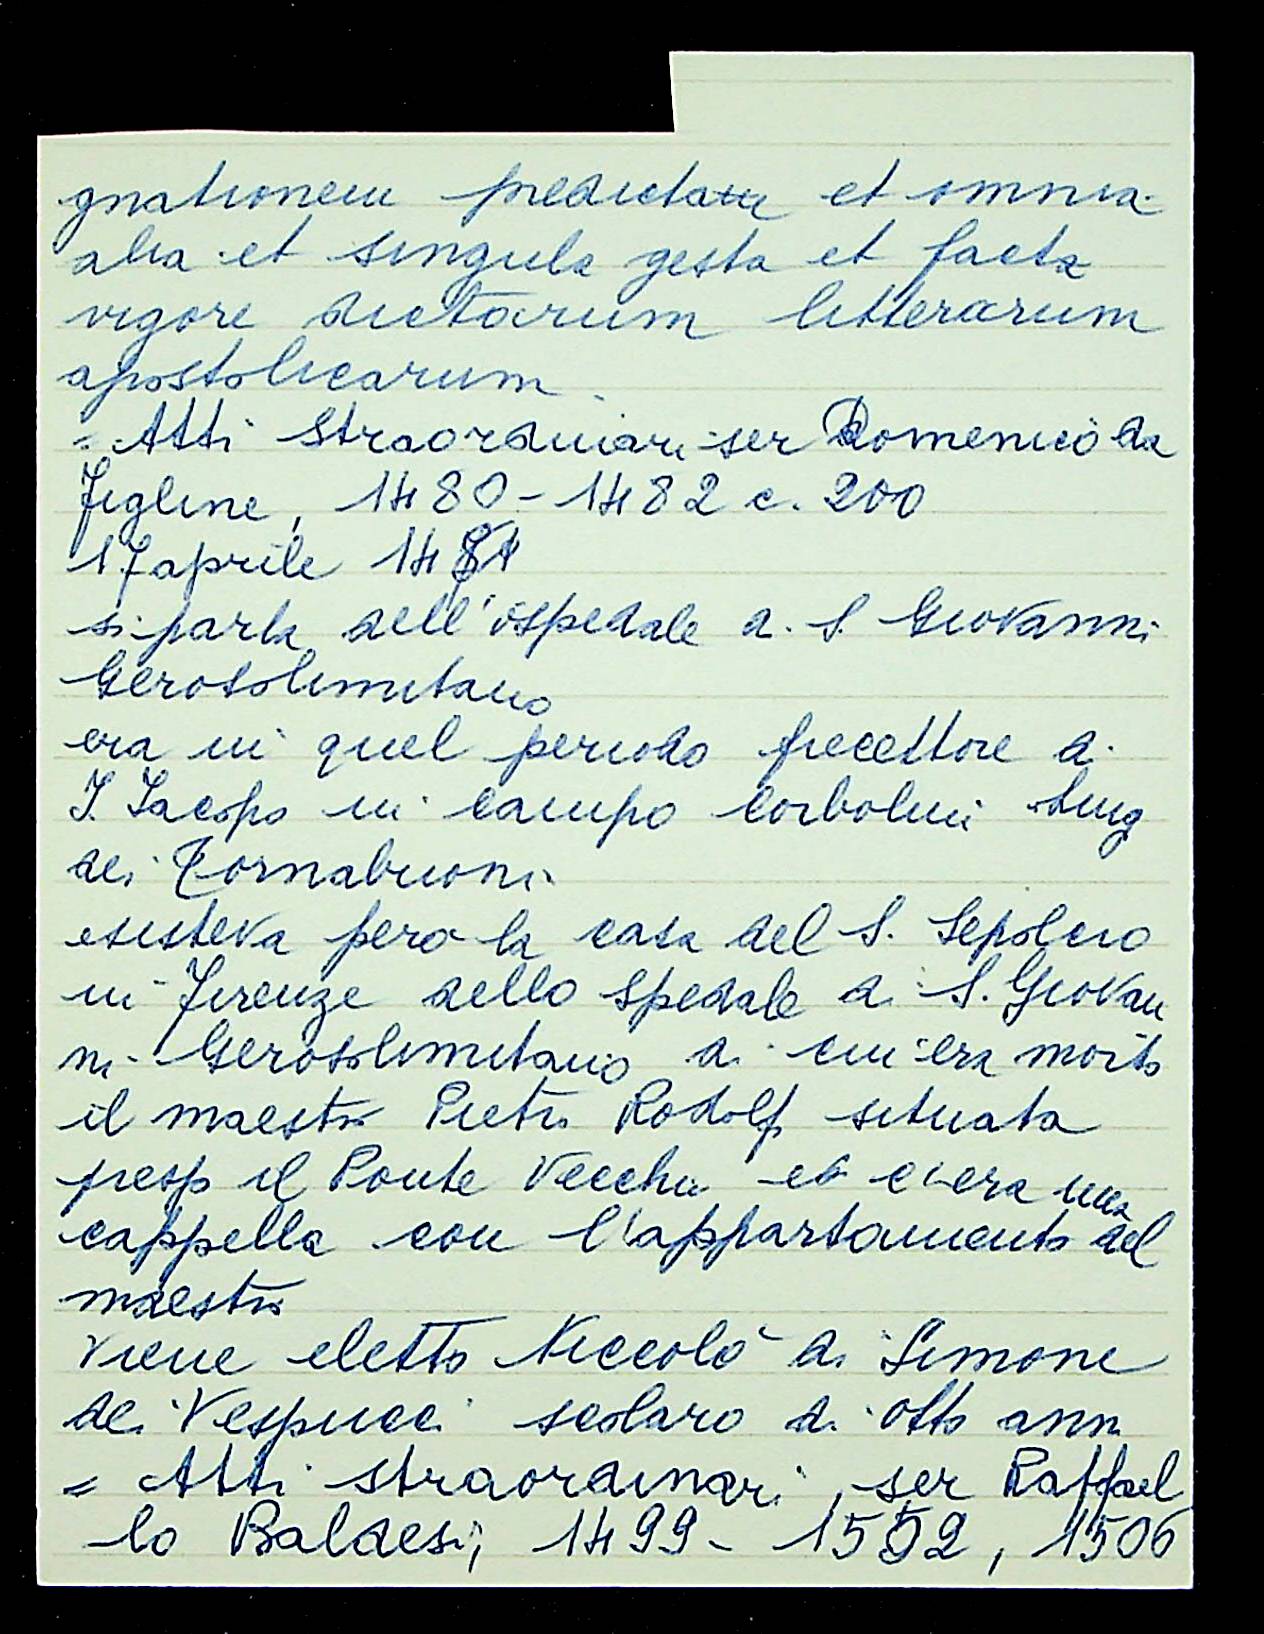 gnationem predictam et omnia
alia et singula gesta et facta
vigore dictarum litterarum
apostolicarum
= Atti Straordinari ser Domenico da
Figline, 1480-1482 c. 200
17 aprile 1481
si parla dell'ospedale di S. Giovanni
Gerosolimitano
era in quel periodo precettore di
S. Jacopo in campo Corbolini Luig
dei Tornabuoni
esisteva pero la casa del S. Sepolcro
in Firenze dello spedale di S. Giovan
ni Gerosolimitano di cui era morto
il maestro Pietro Rodolfi situata
presso il Ponte Vecchio ci era una
cappella con l'appartamento del
maestro
viene eletto Niccolò di Simone
dei Vespucci scolaro di otto anni
= Atti straordinari, ser Raffael
lo Baldesi, 1499-1502, 1506